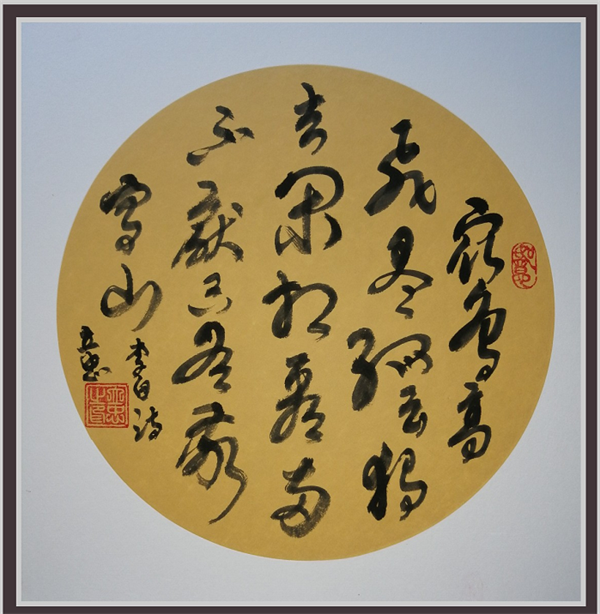 众鸟高
飞尽孤云独
去闲相看两
不厌只有敬
亭山
李白诗
立忠